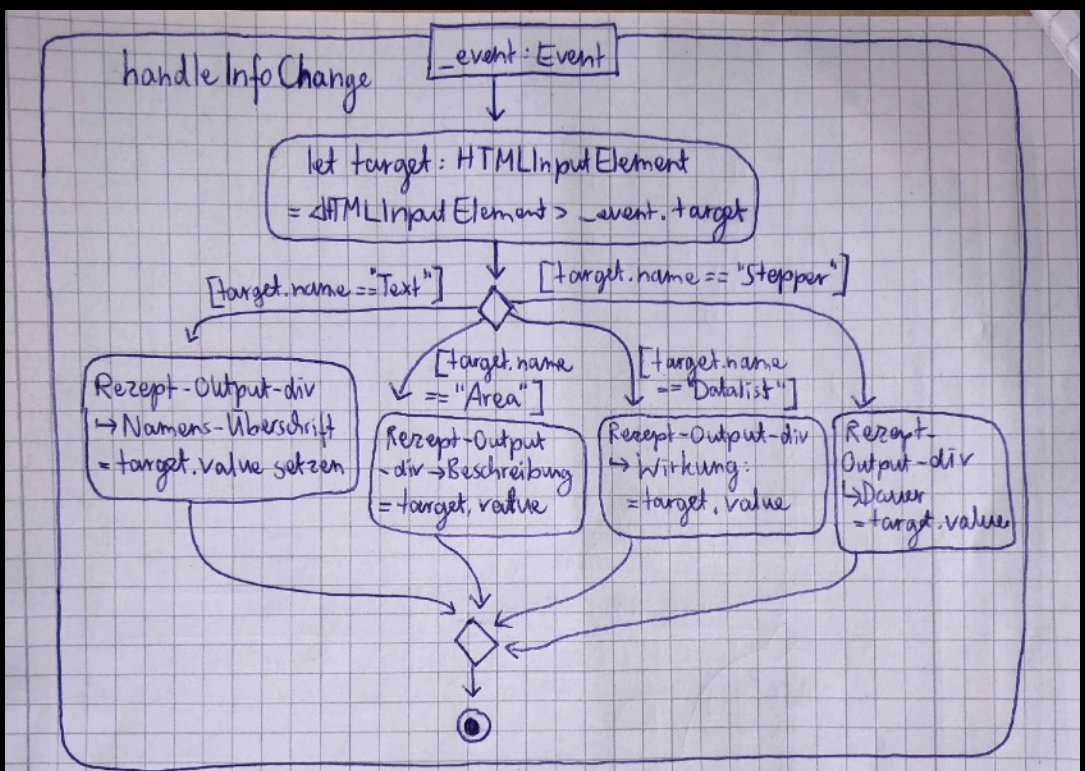 handleInfoChange
_event: Event
let target: HTMLInputElement
= <HTMLInputElement> _event.target
[target.name == "Text"]
[target.name == "Stepper"]
[target.name
== "Area"]
[target.name
== "Datalist"]
Rezept-Output-div
↳ Namens-Überschrift
= target.value setzen
Rezept-Output
-div → Beschreibung
= target.value
Rezept-Output-div
↳ Wirkung:
= target.value
Rezept-
Output-div
↳ Dauer
= target.value